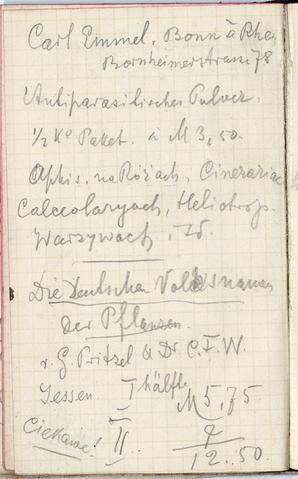 Carl Emmel, Bonn à Rhein
Bornheimerstrasse 78
Antiparasitisches Pulver.
1/2 Kº Paket. à M 3,50.
Aphis. na Różach, Cinerariac
Calceolaryach, Heliotrop.
Warzywach, itd.
Die Deutschen Volksnamen
der Pflanzen.
v. G. Pritzel & Dr C. I. W.
Jessen. I hälfte M 5,75
Ciekawe! II. 7
12.50.